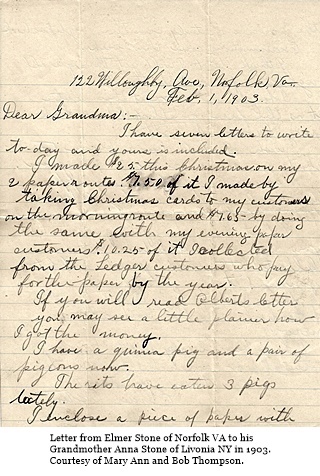 122 Willoughby, Ave, Norfolk Va.
Feb. 1, 1903.
Dear Grandma:-
I have seven letters to write
to-day and yours is included.
I made $25 this Christmas on my
2 paper routes. $7.50 of it I made by
taking Christmas cards to my customers
on the morning route and $7.65 by doing
the same with my evening paper
customers. $10.25 of it I collected
from the Ledger customers who pay
for the paper by the year.
If you will read letter
you may see a little plainer how
I got the money.
I have a guinea pig and a pair of
pigeons now.
The have eaten 3 pigs
lately.
I enclose a piece of paper with
Letter from Elmer Stone of Norfolk VA to his
Grandmother Anna Stone of Livonia NY in 1903.
Courtesy of Mary Ann and Bob Thompson.